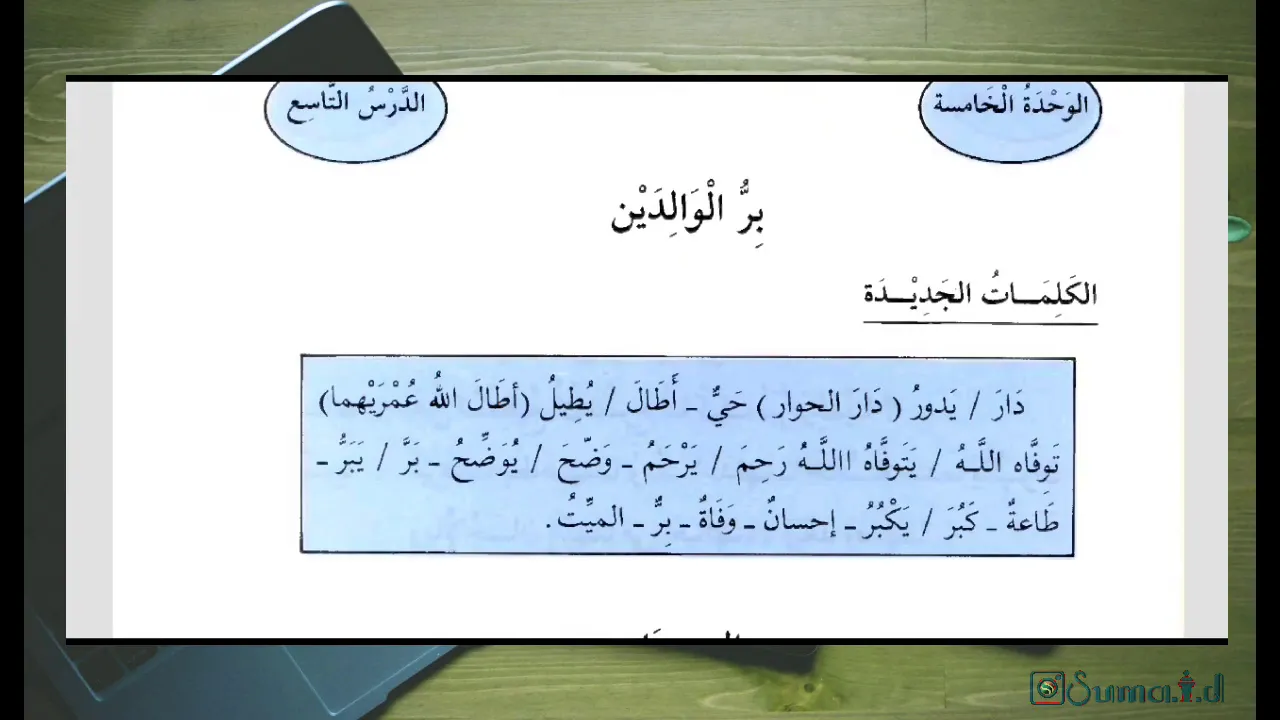 الوَحْدَةُ الْخَامسة
الدَّرْسُ التَّاسِع
بِرُّ الْوَالِدَيْن
الكَلِمَـــاتُ الجَدِيْـــدَة
دَارَ / يَدورُ ( دَارَ الحوار ) حَيٌّ ـ أَطَالَ / يُطِيلُ (أطَالَ اللهُ عُمْرَيْهما)
تَوِفَّاه اللَّـهُ / يَتَوفَّاهُ االلَّـهُ رَحِمَ / يَرْحَمُ ـ وَضّحَ / يُوَضِّحُ ـ بَرَّ / يَبَرُّ ـ
طَاعةٌ ـ كَبُرَ / يَكْبُرُ ـ إحسانٌ ـ وَفَاةٌ ـ بِرٌّ ـ الميِّتُ.
Suma.id